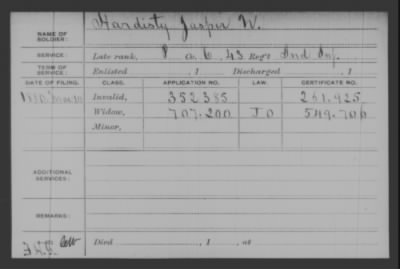 NAME OF SOLDIER: Hardisty Jasper W.
SERVICE: Late rank, P Co. C, 43 Reg't Ind Inf.
TERM OF SERVICE: Enlisted , 1 Discharged , 1
DATE OF FILING. CLASS. APPLICATION NO. LAW. CERTIFICATE NO.
Invalid, 352385 261.925
Widow, 707.200 J O 549.706
Minor,
ADDITIONAL SERVICES:
REMARKS:
Died , 1 , at